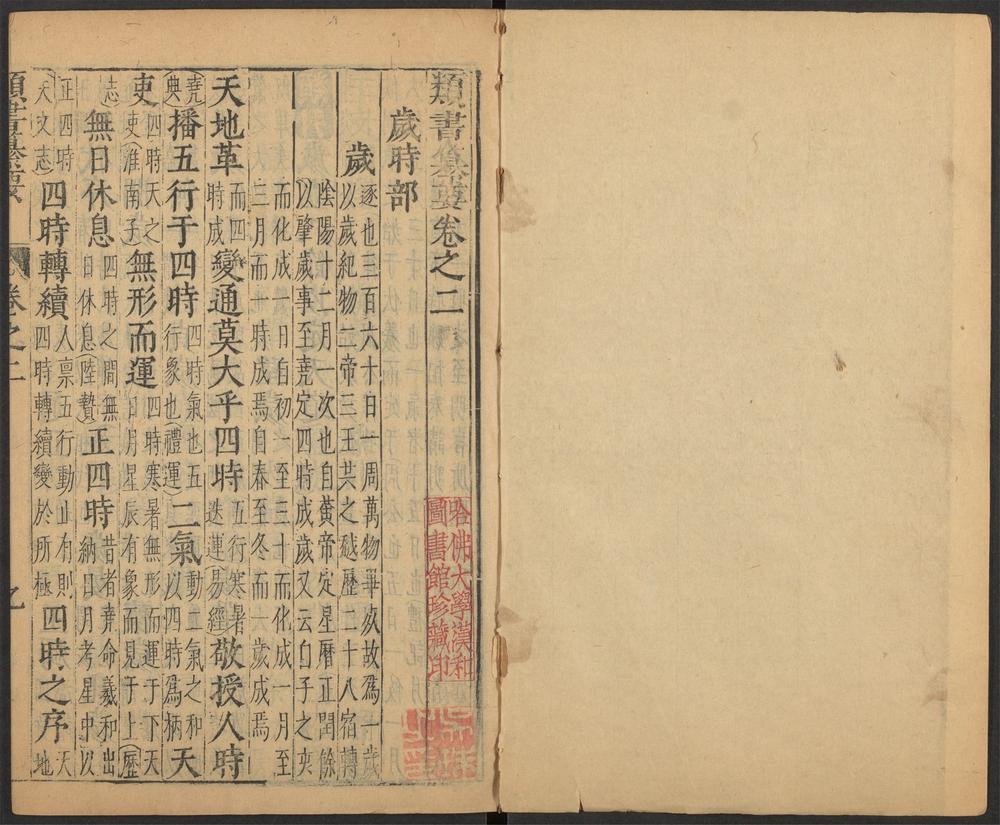 類書纂要卷之二
哈佛大學漢和
圖書館珍藏印
歲時部
歲
逐也三百六十日一周萬物畢成故爲一歲
以歲紀物二帝三王共之越歷二十八宿轉
陰陽十二月一次也自黃帝定星曆正閏餘
以肇歲事至堯定四時成歲又云白子之夾
而化成一日自初一至三十而化成一月至
三月而一時成焉自春至冬而一歲成焉
天地革而四時成變通莫大乎四時五行寒暑迭運(易經)敬授人時
(堯典)播五行于四時四時氣也五行象也(禮運)二氣動二氣之和以四時爲柄天
吏四時天之吏(淮南子)無形而運四時寒暑無形而運于下天日月星辰有象而見于上(歷
志)無日休息四時之間無日休息(陸贄)正四時昔者堯命羲和出納日月考星中以
正四時天文志)四時轉續人禀五行動止有則四時轉續變於所極四時之序天地
類書纂要 卷之二 乙